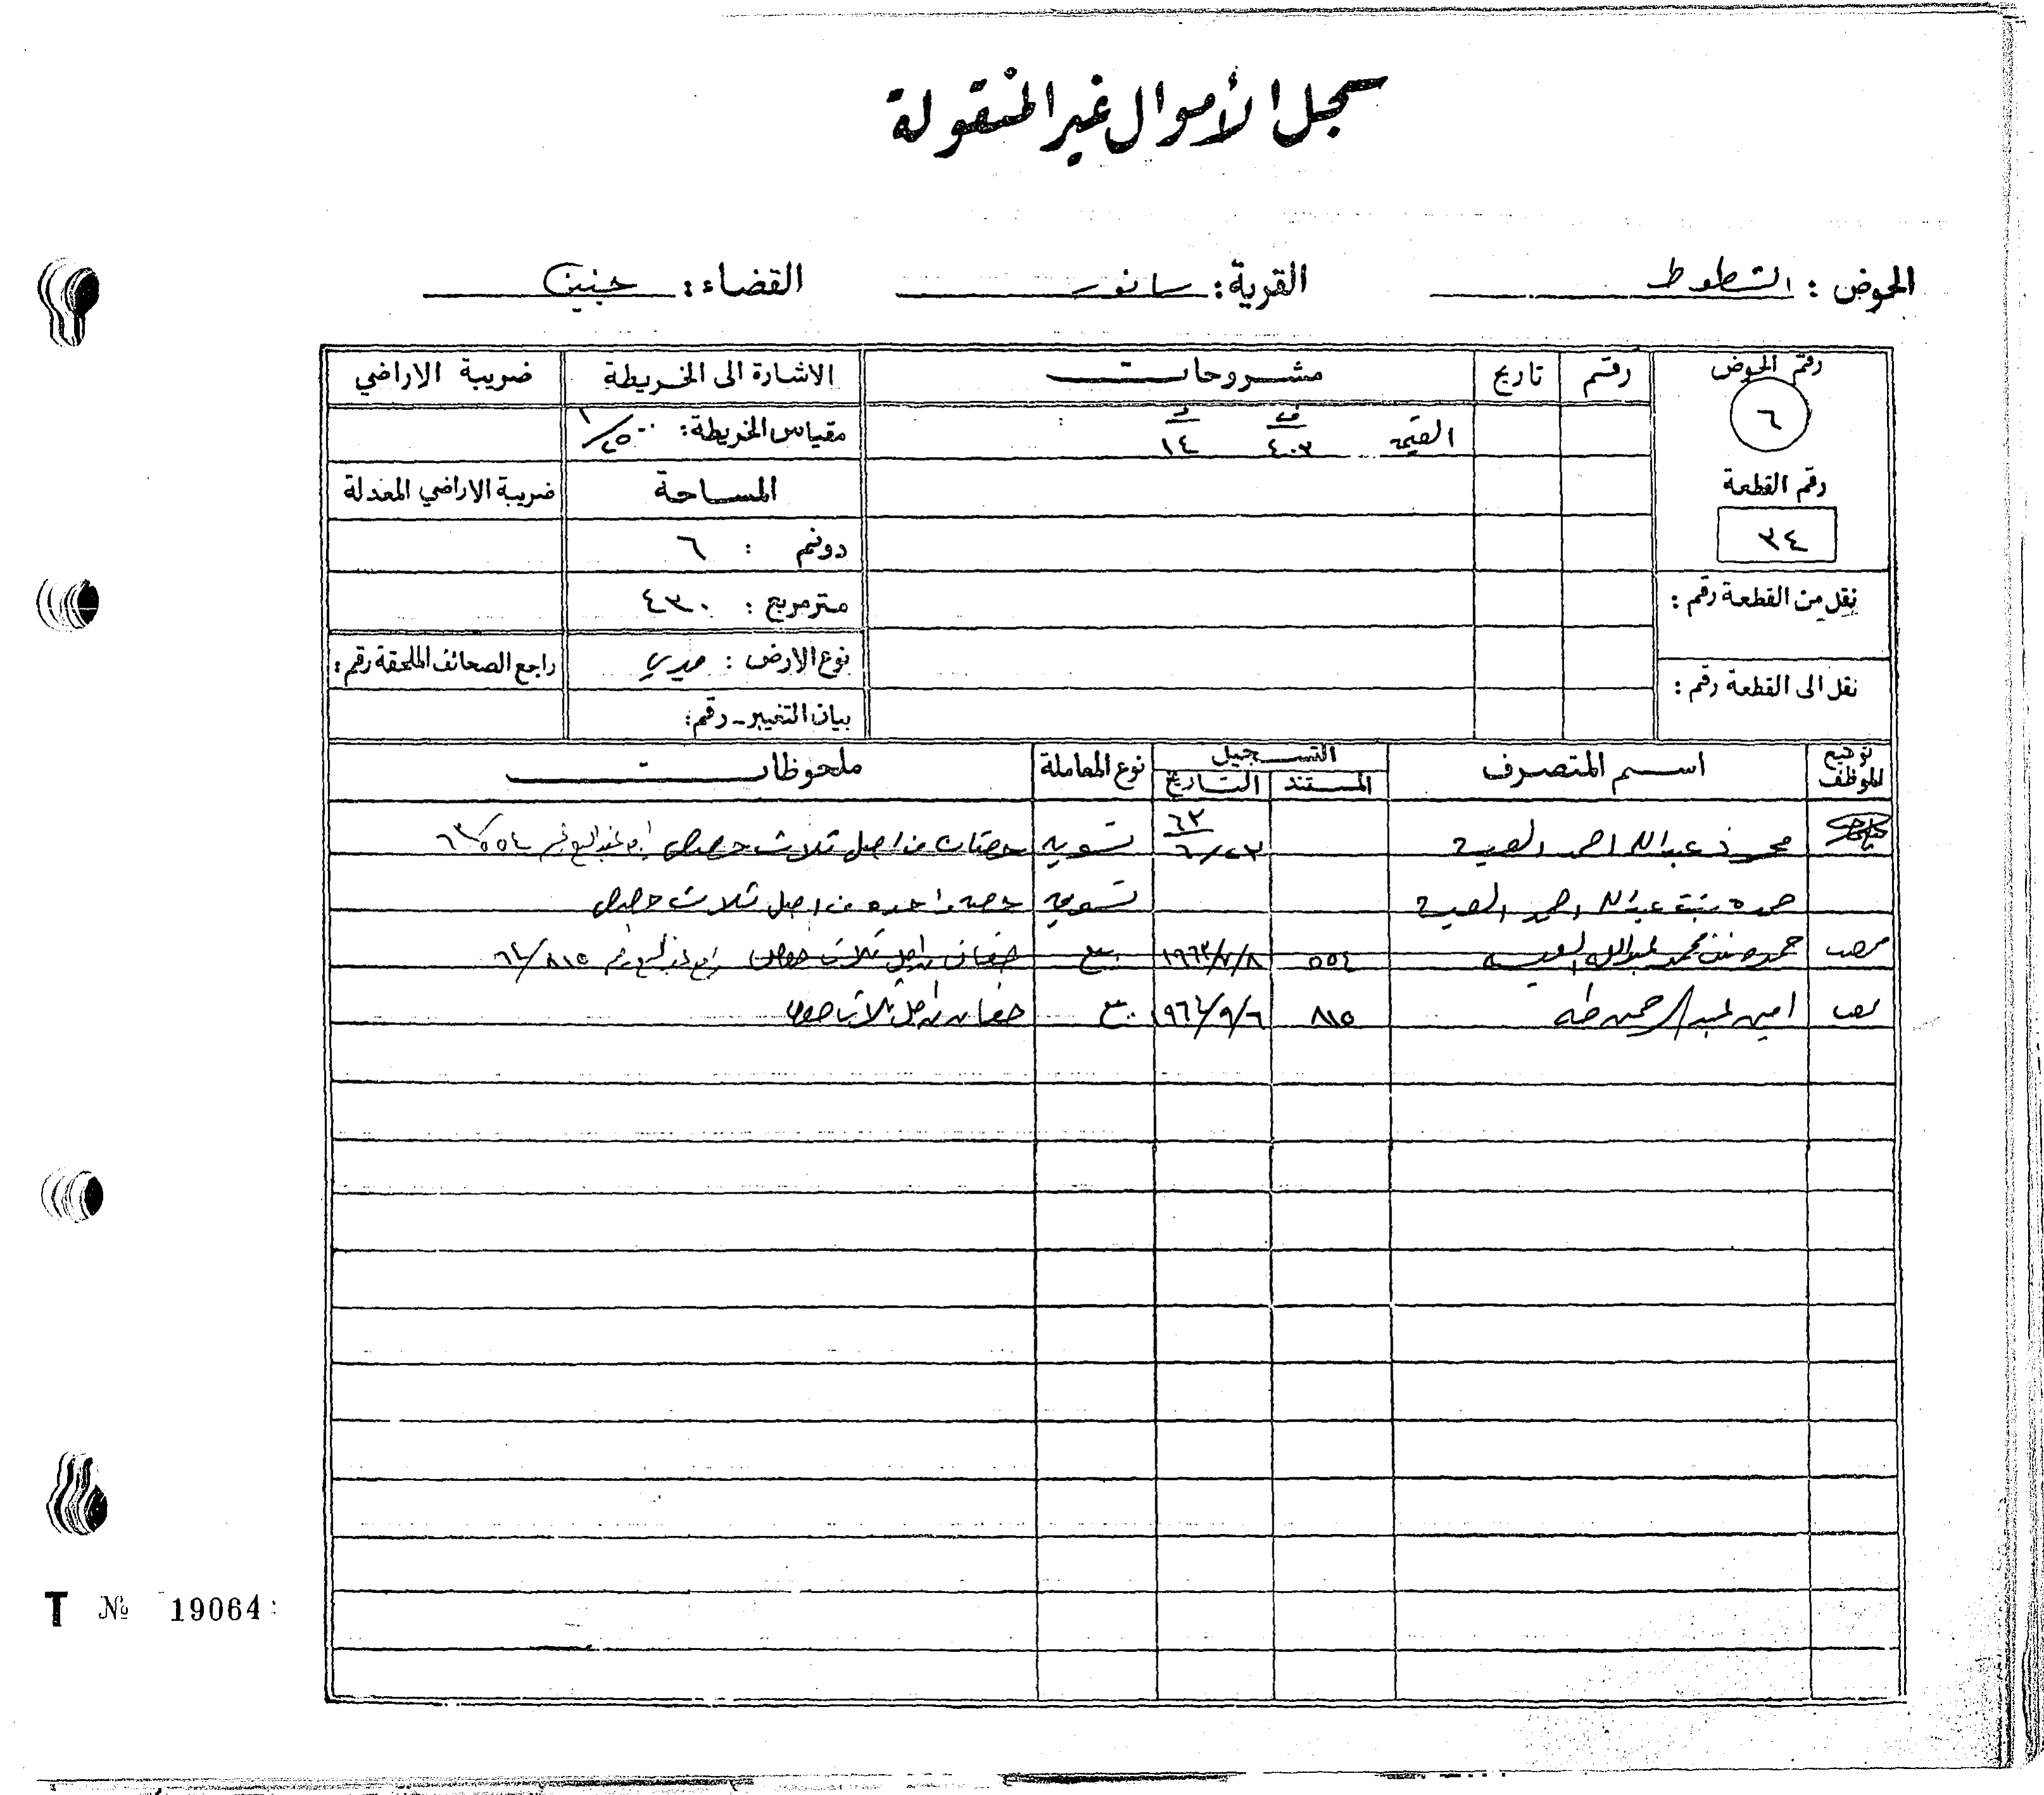 سجل الأموال غير المنقولة
الحوض : الشطوط القرية : سانور القضاء : جنين
رقم الحوض رقم تاريخ مشروحات الاشارة الى الخريطة ضريبة الاراضي
٦ القيمة ف ٤٠٣ د ١٤ مقياس الخريطة : ١/٢٥٠٠
رقم القطعة المساحة ضريبة الاراضي المعدلة
٣٤ دونم : ٦
نقل من القطعة رقم : متر مربع : ٤٣٠
نوع الارض : ميري راجع الصحائف الملحقة رقم :
نقل الى القطعة رقم : بيان التغيير - رقم :
توقيع الموظف اسم المتصرف التسجيل المستند التاريخ نوع المعاملة ملحوظات
محمد عبدالله احمد ٦٣ ٦/٢٣ تسوية حصتان من اصل ثلاث حصص ٦٣/٥٥٤
حمده بنت عبدالله احمد تسوية حصة واحده من اصل ثلاث حصص
حمده بنت محمد عبدالله ٥٥٤ ١٩٦٣/٧/٨ بيع حصتان من اصل ثلاث حصص ٦٤/٨١٥
امين عبد الرحمن طه ٨١٥ ٩٦٤/٩/٦ بيع حصتان من اصل ثلاث حصص
T № 19064